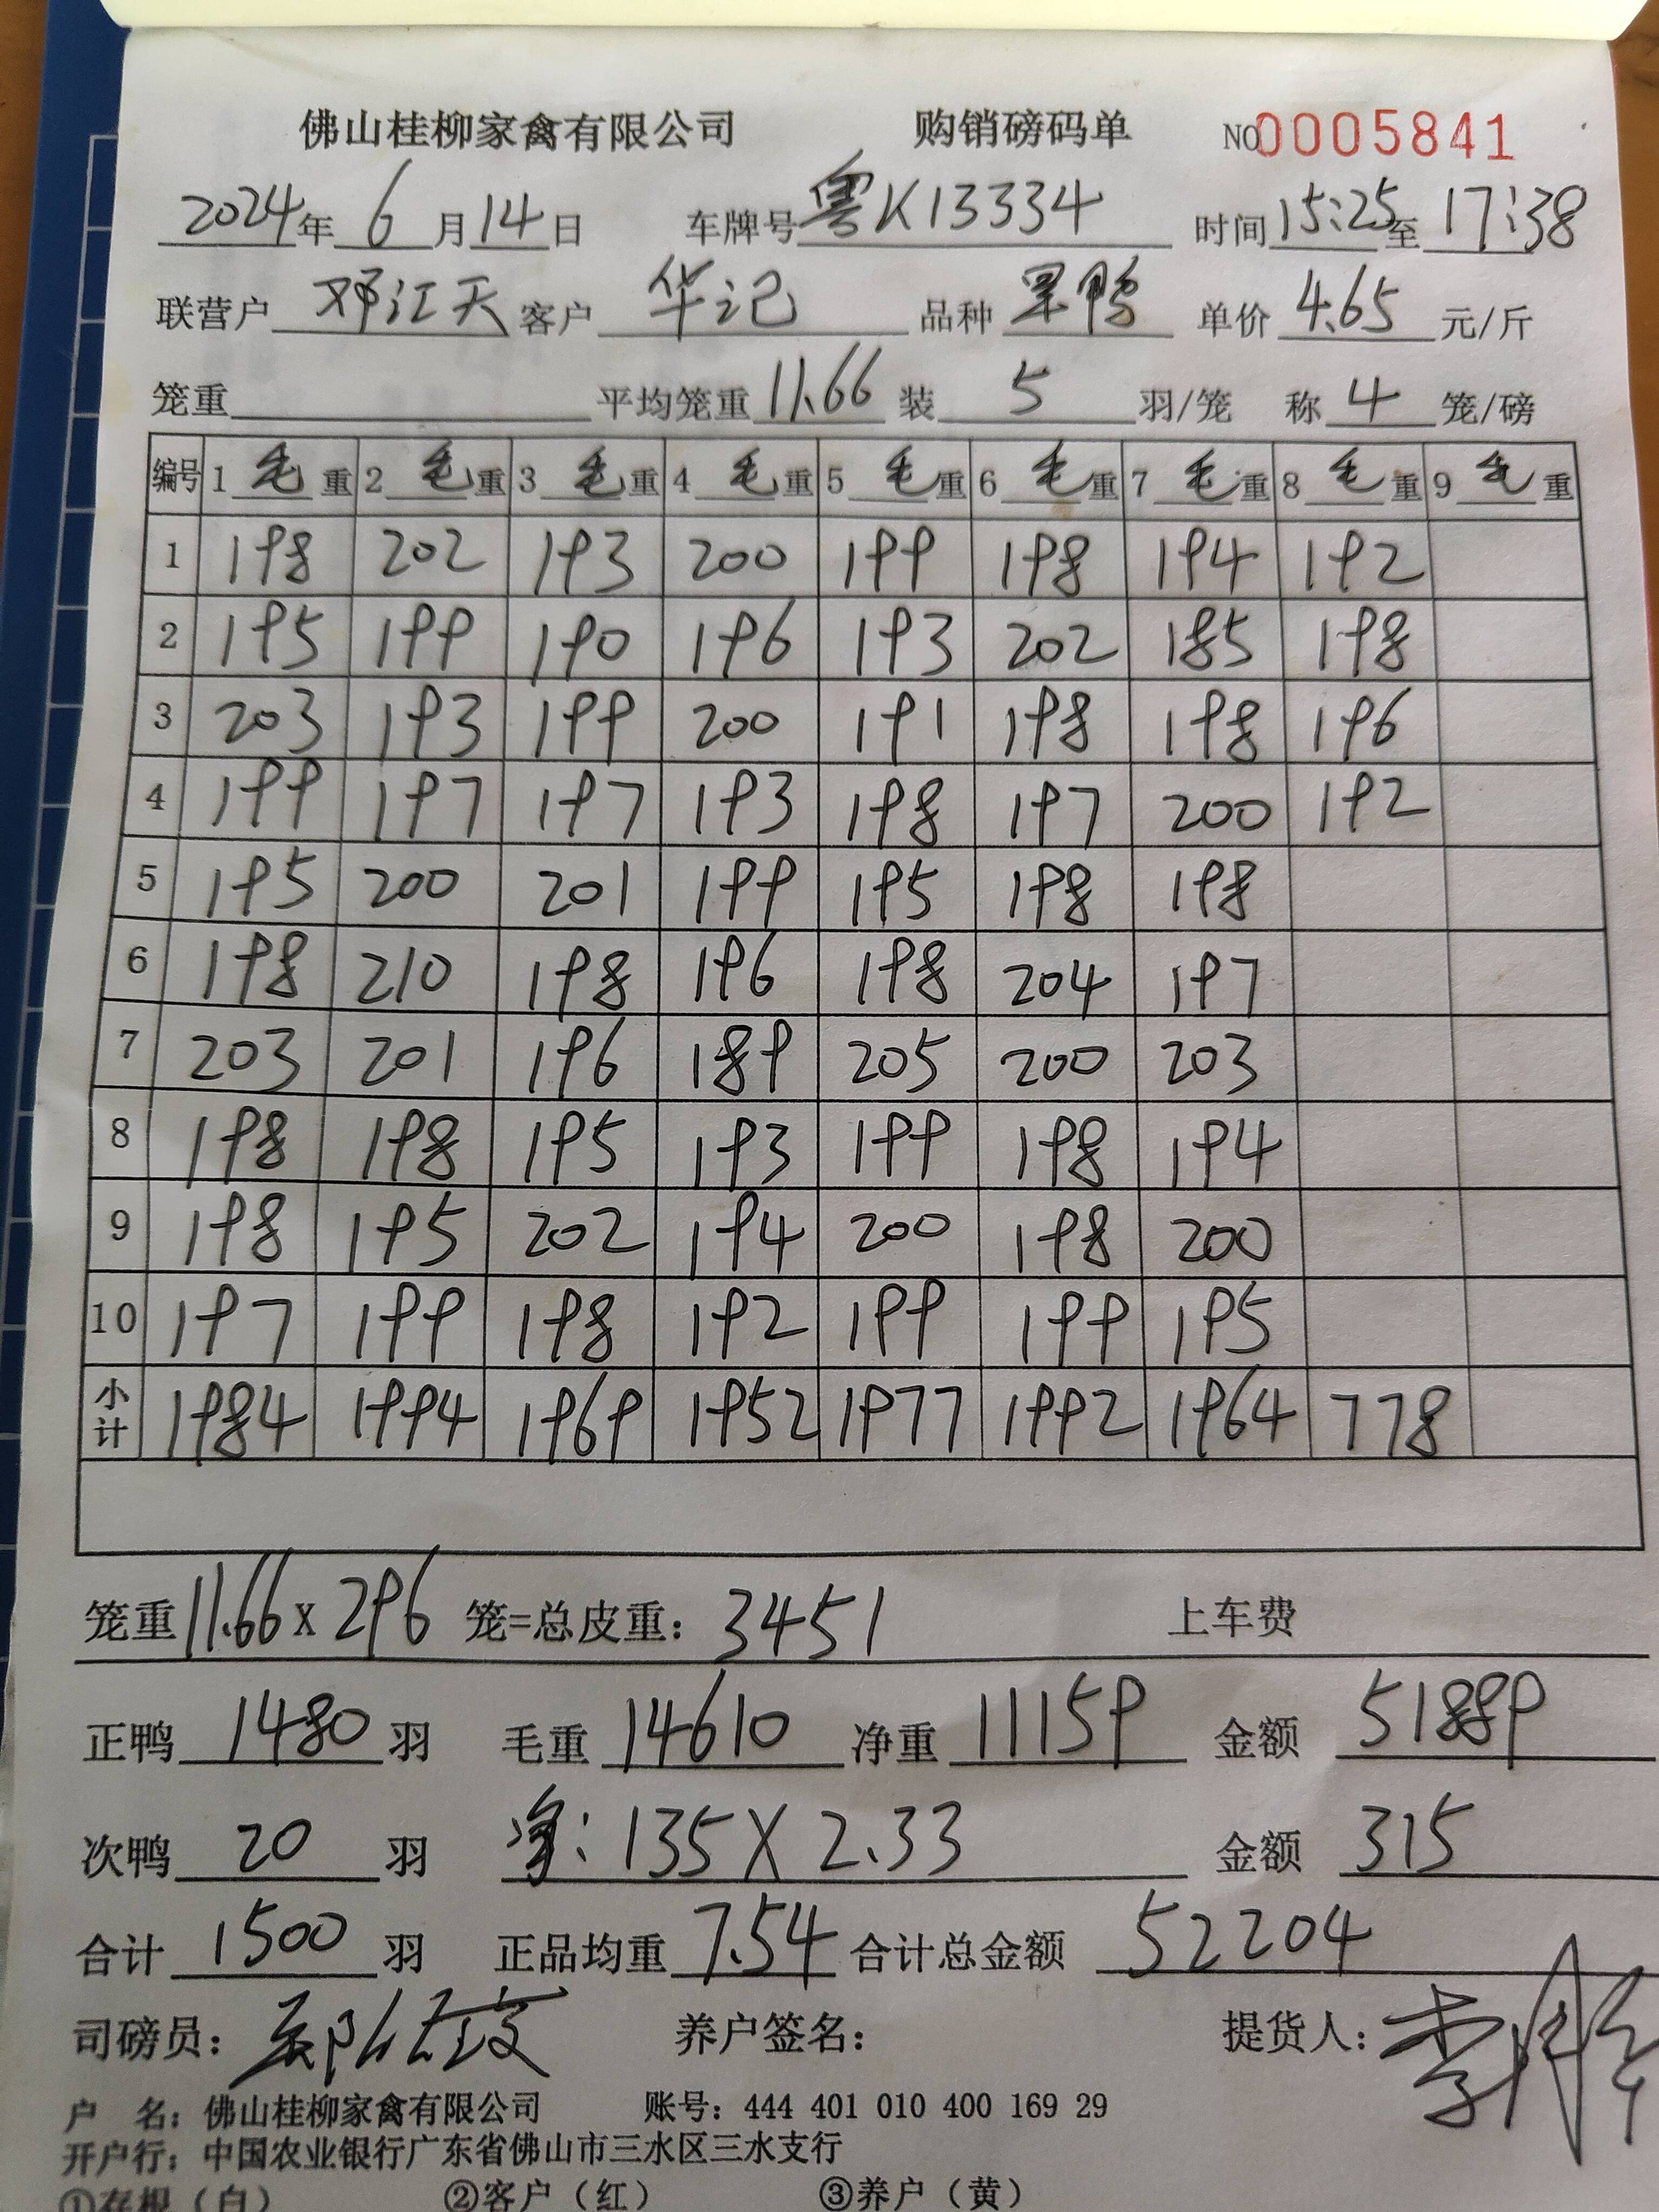 佛山桂柳家禽有限公司 购销磅码单 NO0005841
2024年6月14日 车牌号粤K13334 时间15:25至17:38
联营户 邓江天 客户 华记 品种 鸭 单价 4.65 元/斤
笼重 平均笼重 11.66 装 5 羽/笼 称 4 笼/磅
编号 1 毛 重 2 毛 重 3 毛 重 4 毛 重 5 毛 重 6 毛 重 7 毛 重 8 毛 重 9 毛 重
1 198 202 193 200 199 198 194 192
2 195 199 190 196 193 202 185 198
3 203 193 199 200 191 198 198 196
4 199 197 197 193 198 197 200 192
5 195 200 201 199 195 198 198
6 198 210 198 196 198 204 197
7 203 201 196 189 205 200 203
8 198 198 195 193 199 198 194
9 198 195 202 194 200 198 200
10 197 199 198 192 199 199 195
小计 1984 1994 1969 1952 1977 1992 1964 778
笼重11.66x296 笼=总皮重: 3451 上车费
正鸭 1480 羽 毛重 14610 净重 11159 金额 51889
次鸭 20 羽 净: 135X2.33 金额 315
合计 1500 羽 正品均重 7.54 合计总金额 52204
司磅员: 养户签名: 提货人: 李
户 名: 佛山桂柳家禽有限公司 账号: 444 401 010 400 169 29
开户行: 中国农业银行广东省佛山市三水区三水支行
①存根（白） ②客户（红） ③养户（黄）